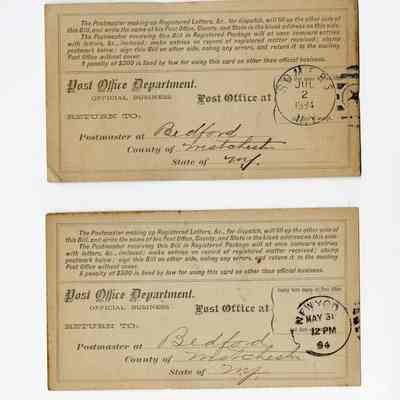 The Postmaster making up Registered Letters, &c., for dispatch, will fill up the other side of
this Bill, and write the name of his Post Office, County, and State in the blank address on this side.
The Postmaster receiving this Bill in Registered Package will at once compare entries
with letters, &c., inclosed; make entries on record of registered matter received; stamp
postmark below; sign this Bill on other side, noting any errors, and return it to the mailing
Post Office without cover.
A penalty of $300 is fixed by law for using this card or other than official business.
Post Office Department.
OFFICIAL BUSINESS
Post Office at
SOMERS
JUL
2
1894
N.Y.
RETURN TO:
Postmaster at Bedford
County of Westchester
State of NY.
The Postmaster making up Registered Letters, &c., for dispatch, will fill up the other side of
this Bill, and write the name of his Post Office, County, and State in the blank address on this side.
The Postmaster receiving this Bill in Registered Package will at once compare entries
with letters, &c., inclosed; make entries on record of registered matter received; stamp
postmark below; sign this Bill on other side, noting any errors, and return it to the mailing
Post Office without cover.
A penalty of $300 is fixed by law for using this card or other than official business.
Post Office Department.
OFFICIAL BUSINESS
Post Office at
NEW YOR
MAY 31
12 PM
94
RETURN TO:
Postmaster at Bedford
County of Westchester
State of NY.